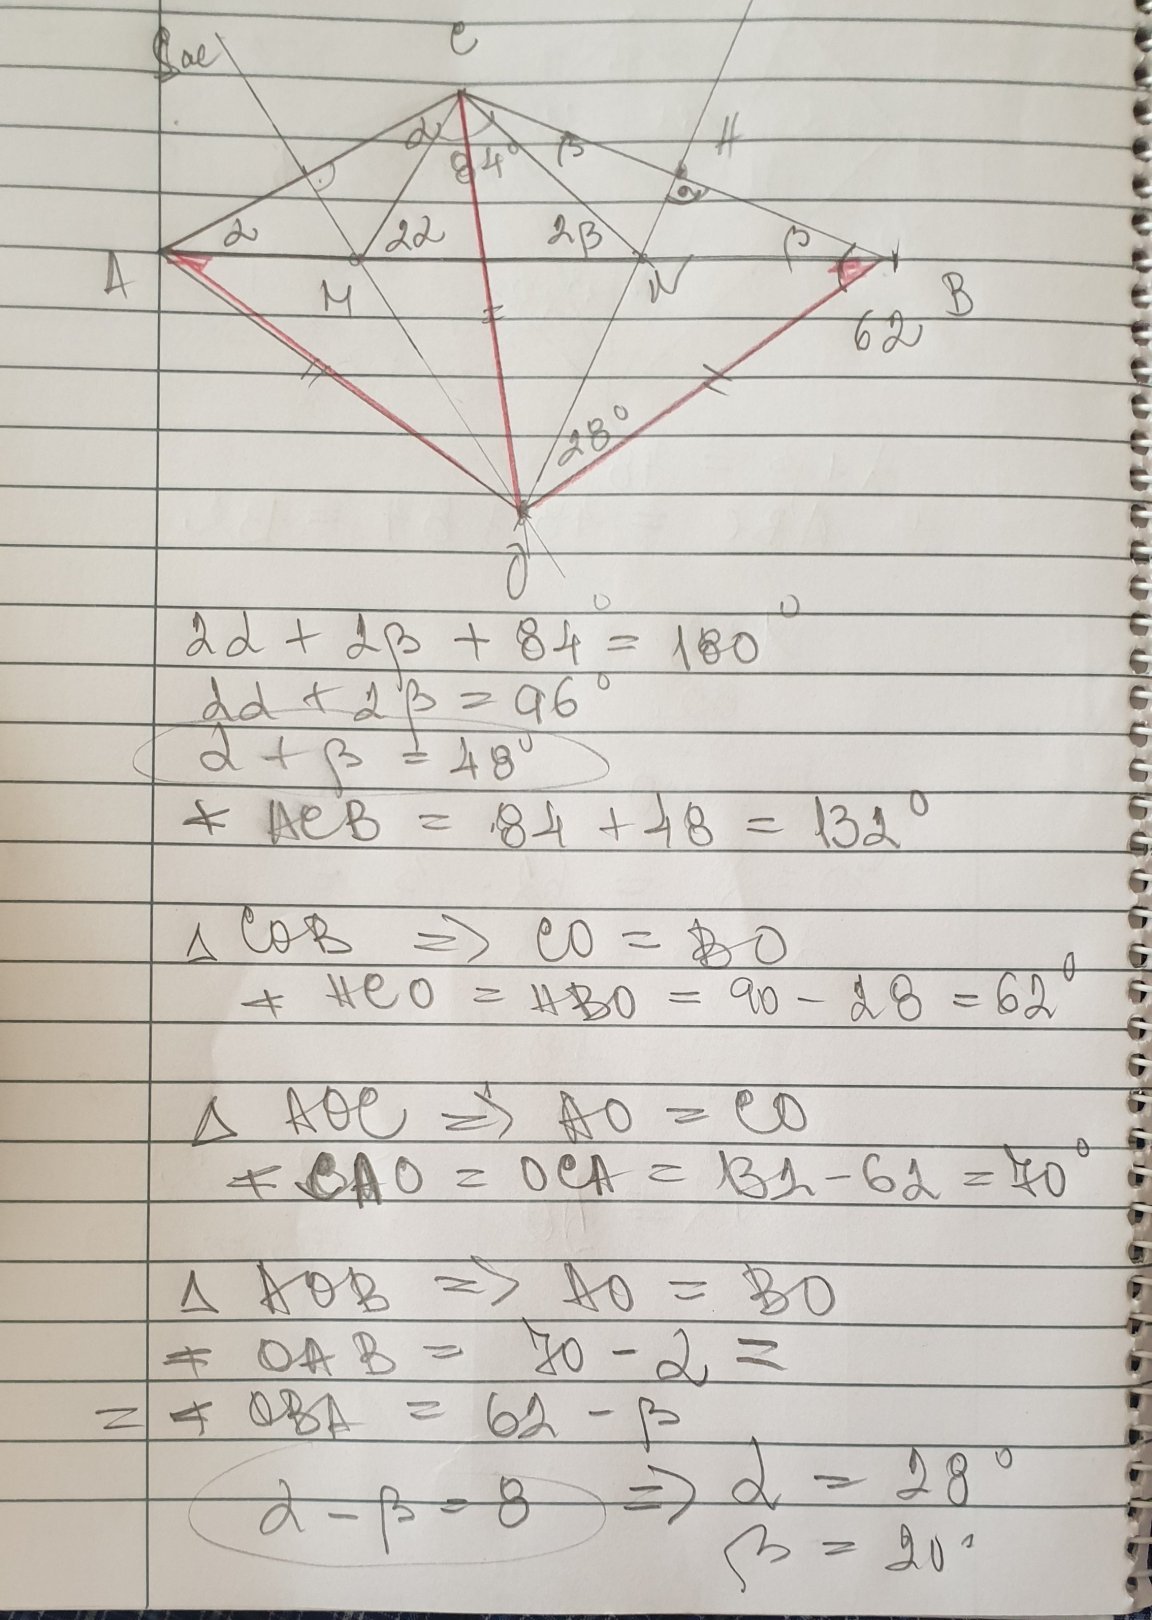 Sac
C
H
α
84°
β
α
2α
2β
β
A
M
N
B
62
28°
O
2α + 2β + 84° = 180°
2α + 2β = 96°
α + β = 48°
∢ ACB = 84 + 48 = 132°
Δ COB => CO = BO
∢ HCO = HBO = 90 - 28 = 62°
Δ AOC => AO = CO
∢ CAO = OCA = 132 - 62 = 70°
Δ AOB => AO = BO
∢ OAB = 70 - α =
= ∢ OBA = 62 - β
α - β = 8 => α = 28°
β = 20°